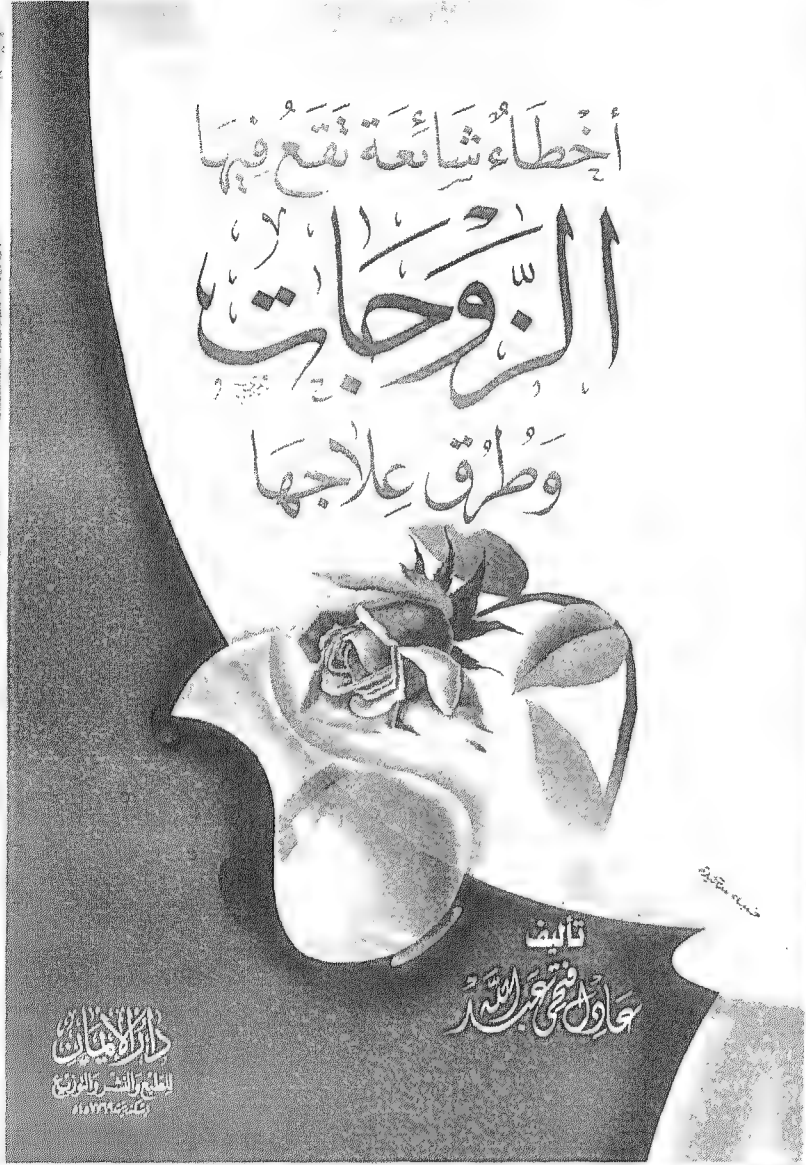 أَخْطَاءٌ شَائِعَة تَقَعُ فِيْهَا
الزَّوْجَات
وَطُرُق عِلَاجهَا
تأليف
عَادِل فتحى عَبد اللَّه
دَار الإيمَان
للطبع والنشر والتوزيع